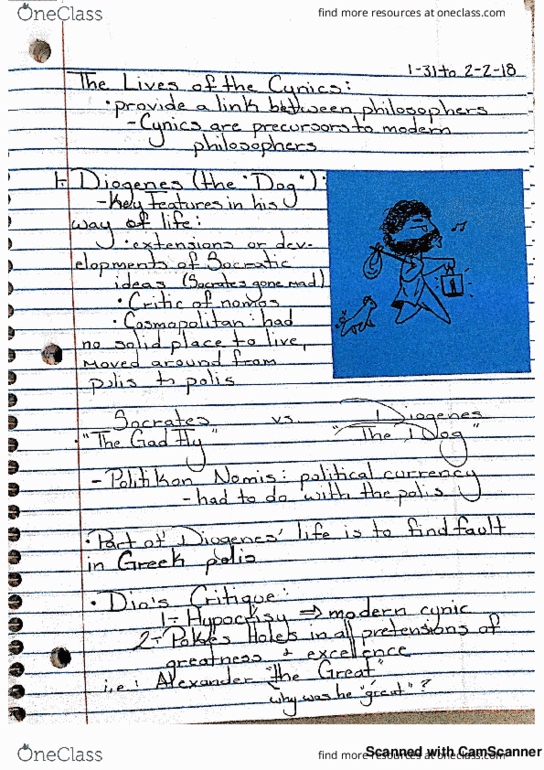 OneClass
find more resources at oneclass.com
1-31 to 2-2-18
The Lives of the Cynics:
• provide a link between philosophers
- Cynics are precursors to modern
philosophers
1. Diogenes (the "Dog"):
- Key features in his
way of life:
• extensions or dev-
elopments of Socratic
ideas (Socrates gone mad)
• Critic of nomos
• Cosmopolitan: had
no solid place to live,
moved around from
polis to polis
Socrates vs. Diogenes
• "The Gad fly" "The Dog"
- Politikon Nomis: political currency
- had to do with the polis
• Part of Diogenes' life is to find fault
in Greek polis
• Dio's Critique:
1- Hypocrisy ⇒ modern cynic
2- Pokes Holes in all pretensions of
greatness & excellence
i.e.: Alexander "the Great"
why was he "great"?
OneClass
find more resources at oneclass.com
Scanned with CamScanner